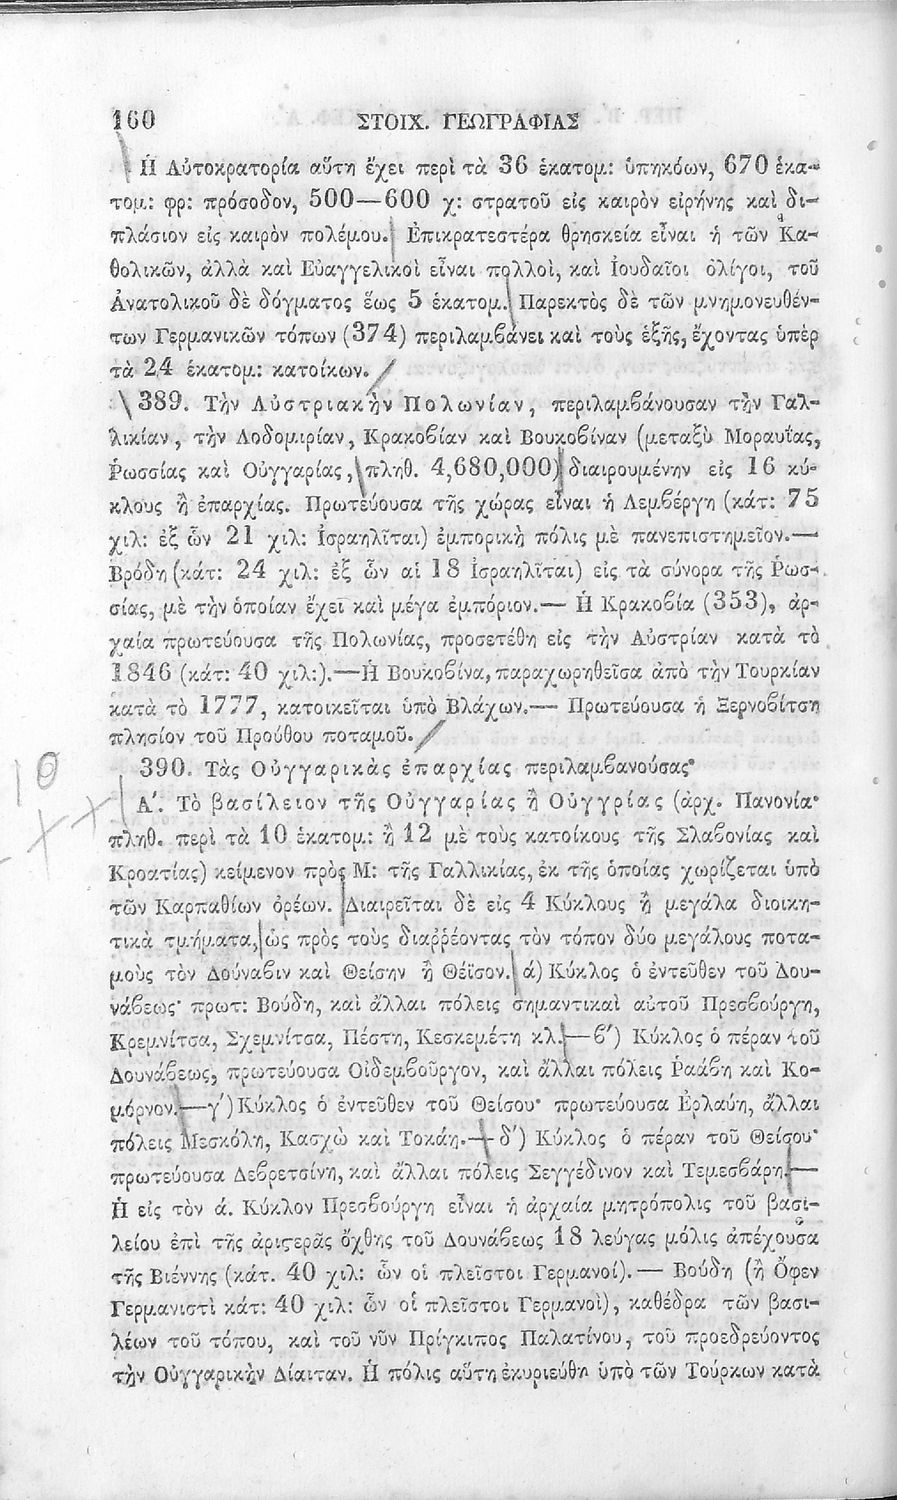 160 ΣΤΟΙΧ. ΓΕΩΓΡΑΦΙΑΣ
Ἡ Αὐτοκρατορία αὕτη ἔχει περὶ τὰ 36 ἑκατομ: ὑπηκόων, 670 ἑκα-
τομ: φρ: πρόσοδον, 500—600 χ: στρατοῦ εἰς καιρὸν εἰρήνης καὶ δι-
πλάσιον εἰς καιρὸν πολέμου. Ἐπικρατεστέρα θρησκεία εἶναι ἡ τῶν Κα-
θολικῶν, ἀλλὰ καὶ Εὐαγγελικοὶ εἶναι πολλοὶ, καὶ Ἰουδαῖοι ὀλίγοι, τοῦ
Ἀνατολικοῦ δὲ δόγματος ἕως 5 ἑκατομ. Παρεκτὸς δὲ τῶν μνημονευθέν-
των Γερμανικῶν τόπων (374) περιλαμβάνει καὶ τοὺς ἑξῆς, ἔχοντας ὑπὲρ
τὰ 24 ἑκατομ: κατοίκων.
389. Τὴν Αὐστριακὴν Πολωνίαν, περιλαμβάνουσαν τὴν Γαλ-
λικίαν, τὴν Λοδομιρίαν, Κρακοβίαν καὶ Βουκοβίναν (μεταξὺ Μοραυΐας,
Ῥωσσίας καὶ Οὑγγαρίας, πληθ. 4,680,000) διαιρουμένην εἰς 16 κύ-
κλους ἢ ἐπαρχίας. Πρωτεύουσα τῆς χώρας εἶναι ἡ Λεμβέργη (κάτ: 75
χιλ: ἐξ ὧν 21 χιλ: Ἰσραηλῖται) ἐμπορικὴ πόλις μὲ πανεπιστημεῖον.—
Βρόδη (κάτ: 24 χιλ: ἐξ ὧν αἱ 18 Ἰσραηλῖται) εἰς τὰ σύνορα τῆς Ῥωσ-
σίας, μὲ τὴν ὁποίαν ἔχει καὶ μέγα ἐμπόριον.— Ἡ Κρακοβία (353), ἀρ-
χαία πρωτεύουσα τῆς Πολωνίας, προσετέθη εἰς τὴν Αὐστρίαν κατὰ τὸ
1846 (κάτ: 40 χιλ:).—Ἡ Βουκοβίνα, παραχωρηθεῖσα ἀπὸ τὴν Τουρκίαν
κατὰ τὸ 1777, κατοικεῖται ὑπὸ Βλάχων.— Πρωτεύουσα ἡ Ξερνοβίτση
πλησίον τοῦ Προύθου ποταμοῦ.
10
390. Τὰς Οὑγγαρικὰς ἐπαρχίας περιλαμβανούσας·
Α΄. Τὸ βασίλειον τῆς Οὑγγαρίας ἢ Οὑγγρίας (ἀρχ. Πανονία·
πληθ. περὶ τὰ 10 ἑκατομ: ἢ 12 μὲ τοὺς κατοίκους τῆς Σλαβονίας καὶ
Κροατίας) κείμενον πρὸς Μ: τῆς Γαλλικίας, ἐκ τῆς ὁποίας χωρίζεται ὑπὸ
τῶν Καρπαθίων ὀρέων. Διαιρεῖται δὲ εἰς 4 Κύκλους ἢ μεγάλα διοικη-
τικὰ τμήματα, ὡς πρὸς τοὺς διαῤῥέοντας τὸν τόπον δύο μεγάλους ποτα-
μοὺς τὸν Δούναβιν καὶ Θείσην ἢ Θέϊσον. ά) Κύκλος ὁ ἐντεῦθεν τοῦ Δου-
νάβεως· πρωτ: Βούδη, καὶ ἄλλαι πόλεις σημαντικαὶ αὐτοῦ Πρεσβούργη,
Κρεμνίτσα, Σχεμνίτσα, Πέστη, Κεσκεμέτη κλ.—β΄) Κύκλος ὁ πέραν τοῦ
Δουνάβεως, πρωτεύουσα Οἰδεμβοῦργον, καὶ ἄλλαι πόλεις Ῥαάβη καὶ Κο-
μόρνον.—γ΄) Κύκλος ὁ ἐντεῦθεν τοῦ Θείσου· πρωτεύουσα Ἐρλαύη, ἄλλαι
πόλεις Μεσκόλη, Κασχὼ καὶ Τοκάη.—δ΄) Κύκλος ὁ πέραν τοῦ Θείσου·
πρωτεύουσα Δεβρετσίνη, καὶ ἄλλαι πόλεις Σεγγέδινον καὶ Τεμεσβάρη.—
Ἡ εἰς τὸν ά. Κύκλον Πρεσβούργη εἶναι ἡ ἀρχαία μητρόπολις τοῦ βασι-
λείου ἐπὶ τῆς ἀριστερᾶς ὄχθης τοῦ Δουνάβεως 18 λεύγας μόλις ἀπέχουσα
τῆς Βιέννης (κάτ. 40 χιλ: ὧν οἱ πλεῖστοι Γερμανοί).— Βούδη (ἢ Ὄφεν
Γερμανιστὶ κάτ: 40 χιλ: ὧν οἱ πλεῖστοι Γερμανοὶ), καθέδρα τῶν βασι-
λέων τοῦ τόπου, καὶ τοῦ νῦν Πρίγκιπος Παλατίνου, τοῦ προεδρεύοντος
τὴν Οὑγγαρικὴν Δίαιταν. Ἡ πόλις αὕτη ἐκυριεύθη ὑπὸ τῶν Τούρκων κατὰ